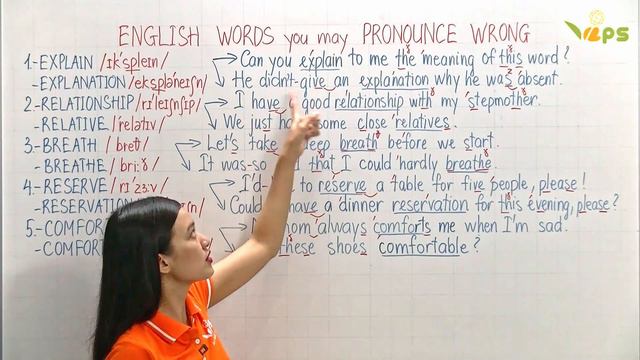 ENGLISH WORDS you may PRONOUNCE WRONG
VLPS
1-EXPLAIN /ɪkˈspleɪn/ Can you explain to me the meaning of this word?
-EXPLANATION /ekspləˈneɪʃn/ He didn't give an explanation why he was absent.
2-RELATIONSHIP /rɪˈleɪʃnʃɪp/ I have good relationship with my stepmother.
-RELATIVE /ˈrelətɪv/ We just some close relatives.
3-BREATH /breθ/ Let's take deep breath before we start.
-BREATHE /briːð/ It was so that I could hardly breathe.
4-RESERVE /rɪˈzɜːv/ I'd to reserve a table for five people, please!
-RESERVATION Could have a dinner reservation for this evening, please?
5- always comforts me when I'm sad.
these shoes comfortable?